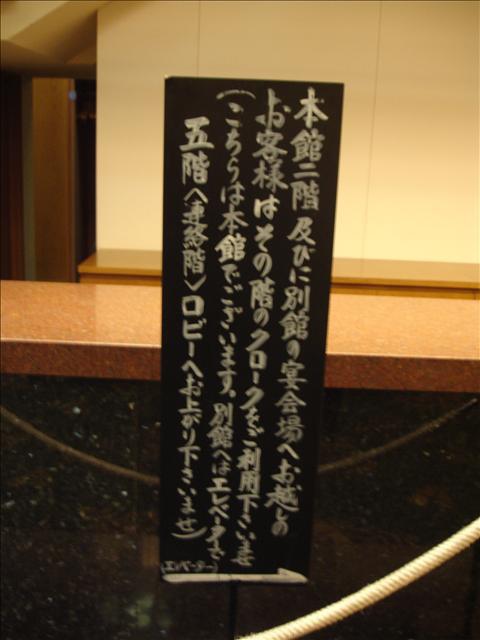 本館二階及びに別館の宴会場へお越しの
お客様はその階のクロークをご利用下さいませ
（こちらは本館でございます。別館へはエレベータで
五階〈連絡階〉ロビーへお上がり下さいませ）
（エレベーター）